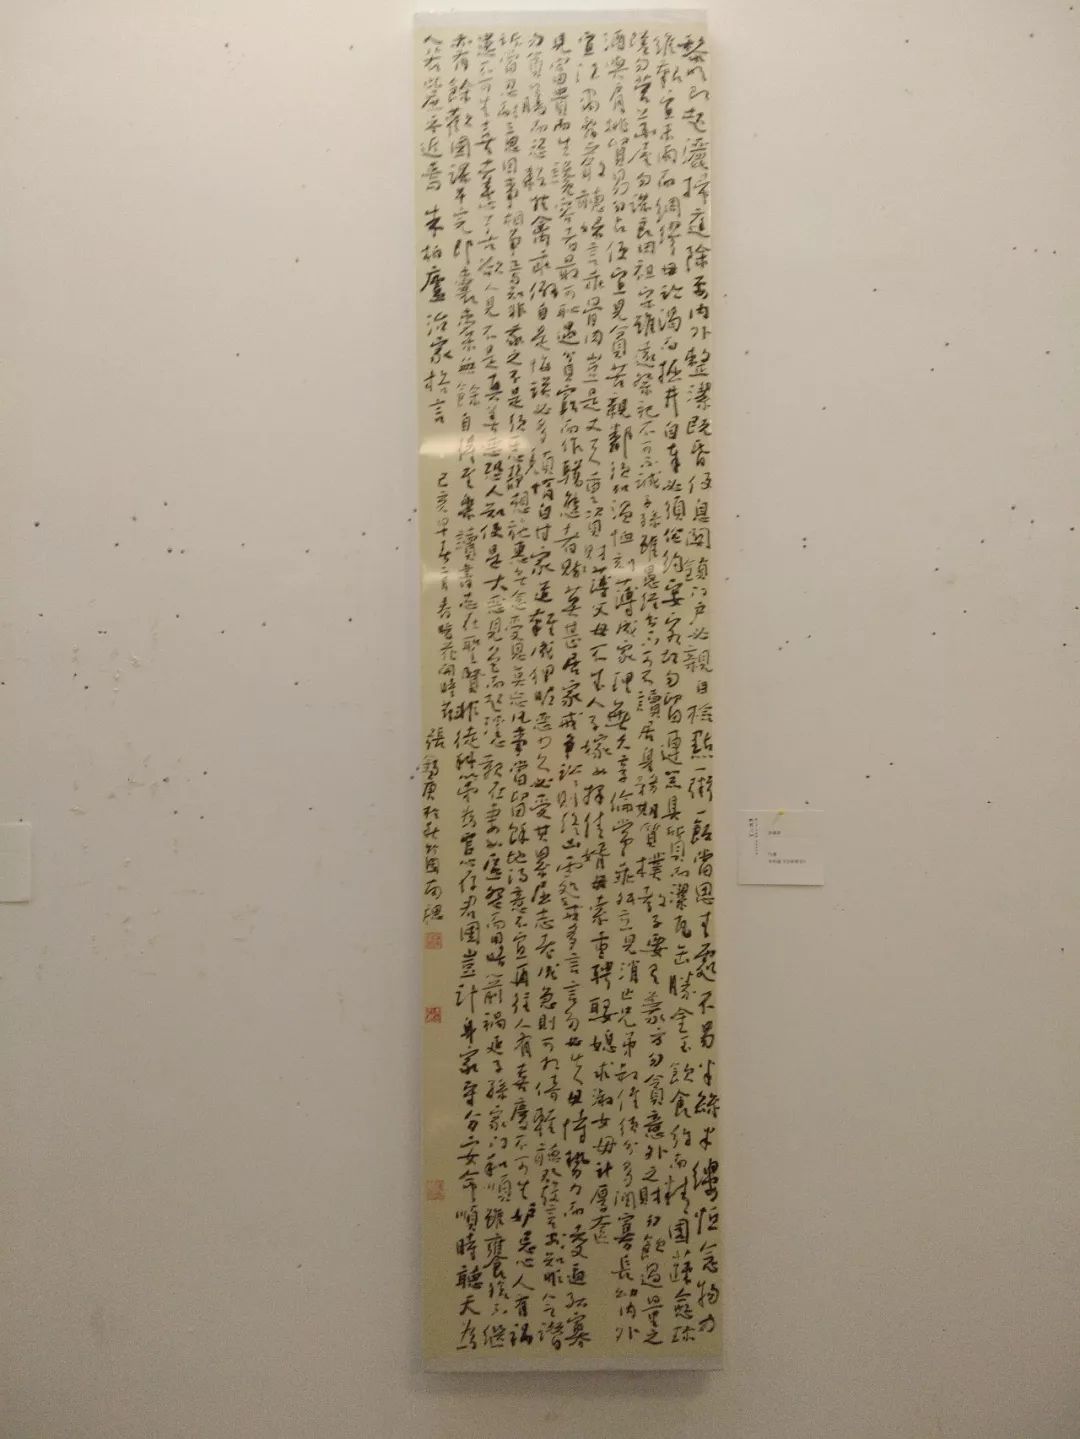 黎明即起灑掃庭除要內外整潔既昏便息關鎖門戶必親自檢點一粥一飯當思來處不易半絲半縷恒念物力
維艱宜未雨而綢繆毋臨渴而掘井自奉必須儉約宴客切勿留連器具質而潔瓦缶勝金玉飲食約而精園蔬愈珍
饈勿營華屋勿謀良田祖宗雖遠祭祀不可不誠子孫雖愚經書不可不讀居身務期質樸教子要有義方勿貪意外之財勿飲過量之
酒與肩挑貿易勿占便宜見貧苦親鄰須加溫恤刻薄成家理無久享倫常乖舛立見消亡兄弟叔侄須分多潤寡長幼內外
宜法肅辭嚴聽婦言乖骨肉豈是丈夫重資財薄父母不成人子嫁女擇佳婿毋索重聘娶媳求淑女毋計厚奩
見富貴而生諂容者最可恥遇貧窮而作驕態者賤莫甚居家戒爭訟訟則終凶處世戒多言言多必失毋恃勢力而凌逼孤寡
勿貪口腹而恣殺牲禽乖僻自是悔誤必多頹惰自甘家道難成狎昵惡少久必受其累屈志老成急則可相倚輕聽發言安知非人之譖
訴當忍耐三思因事相爭焉知非我之不是須平心靜想施惠無念受恩莫忘凡事當留餘地得意不宜再往人有喜慶不可生妒忌心人有禍
患不可生喜幸心善欲人見不是真善惡恐人知便是大惡見色而起淫心報在妻女匿怨而用暗箭禍延子孫家門和順雖饔飧不繼
亦有餘歡國課早完即囊橐無餘自得至樂讀書志在聖賢非徒科第為官心存君國豈計身家守分安命順時聽天為
人若此庶乎近焉 朱柏廬治家格言 己亥早春二月春暖花開時節 張